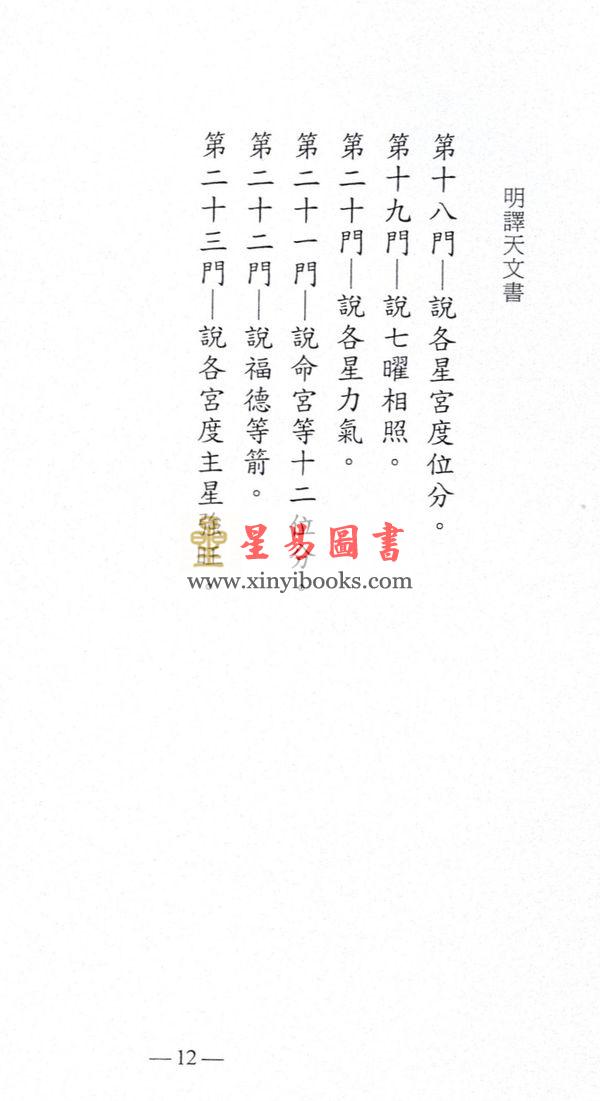 明譯天文書
第十八門—說各星宮度位分。
第十九門—說七曜相照。
第二十門—說各星力氣。
第二十一門—說命宮等十二位分。
第二十二門—說福德等箭。
第二十三門—說各宮度主星強旺。
星易圖書
www.xinyibooks.com
—12—